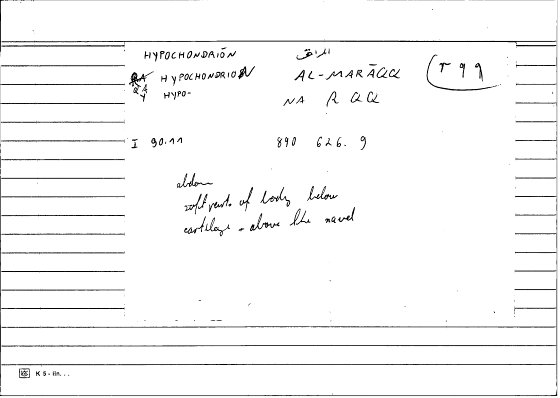 HYPOCHONDRIÓN المراق
HYPOCHONDRION AL-MARĀQQ r qq
HYPO- NA R QQ
I 90.11 890 626. 9
abdom
soft parts of body below
cartilage - above the navel
K 5 - iln. . .